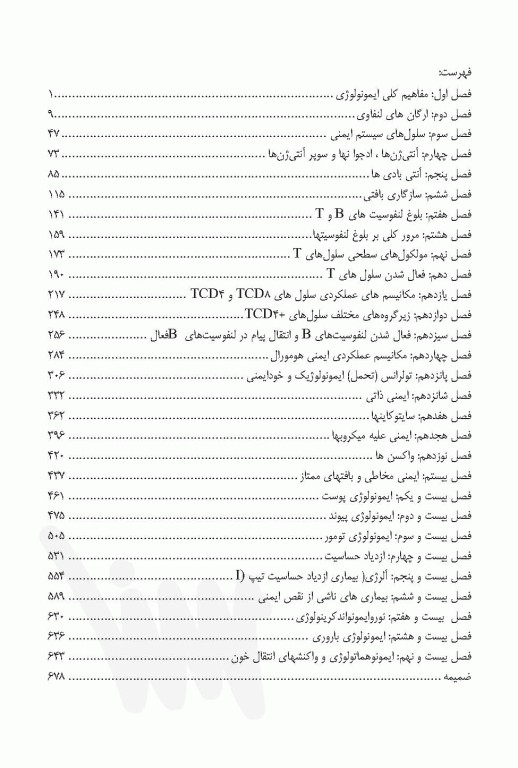 فهرست:
فصل اول: مفاهیم کلی ایمونولوژی ........ ۱
فصل دوم: ارگان های لنفاوی ........ ۹
فصل سوم: سلول‌های سیستم ایمنی ........ ۴۷
فصل چهارم: آنتی‌ژن‌ها ، ادجوا نها و سوپر آنتی‌ژن‌ها ........ ۷۳
فصل پنجم: آنتی بادی ها ........ ۸۵
فصل ششم: سازگاری بافتی ........ ۱۱۵
فصل هفتم: بلوغ لنفوسیت های B و T ........ ۱۴۱
فصل هشتم: مرور کلی بر بلوغ لنفوسیتها ........ ۱۵۹
فصل نهم: مولکول‌های سطحی سلول‌های T ........ ۱۷۳
فصل دهم: فعال شدن سلول های T ........ ۱۹۰
فصل یازدهم: مکانیسم های عملکردی سلول های TCD۸ و TCD۴ ........ ۲۱۷
فصل دوازدهم: زیرگروه‌های مختلف سلول‌های +TCD۴ ........ ۲۴۸
فصل سیزدهم: فعال شدن لنفوسیت‌های B و انتقال پیام در لنفوسیت‌های Bفعال ........ ۲۵۶
فصل چهاردهم: مکانیسم عملکردی ایمنی هومورال ........ ۲۸۴
فصل پانزدهم: تولرانس (تحمل) ایمونولوژیک و خودایمنی ........ ۳۰۶
فصل شانزدهم: ایمنی ذاتی ........ ۳۳۲
فصل هفدهم: سایتوکاینها ........ ۳۶۲
فصل هجدهم: ایمنی علیه میکروبها ........ ۳۹۶
فصل نوزدهم: واکسن ها ........ ۴۲۰
فصل بیستم: ایمنی مخاطی و بافتهای ممتاز ........ ۴۳۷
فصل بیست و یکم: ایمونولوژی پوست ........ ۴۶۱
فصل بیست و دوم: ایمونولوژی پیوند ........ ۴۷۵
فصل بیست و سوم: ایمونولوژی تومور ........ ۵۰۵
فصل بیست و چهارم: ازدیاد حساسیت ........ ۵۳۱
فصل بیست و پنجم: آلرژی( بیماری ازدیاد حساسیت تیپ I) ........ ۵۵۴
فصل بیست و ششم: بیماری های ناشی از نقص ایمنی ........ ۵۸۹
فصل بیست و هفتم: نوروایمونواندکرینولوژی ........ ۶۳۰
فصل بیست و هشتم: ایمونولوژی باروری ........ ۶۳۶
فصل بیست و نهم: ایمونوهماتولوژی و واکنشهای انتقال خون ........ ۶۴۳
ضمیمه ........ ۶۷۸